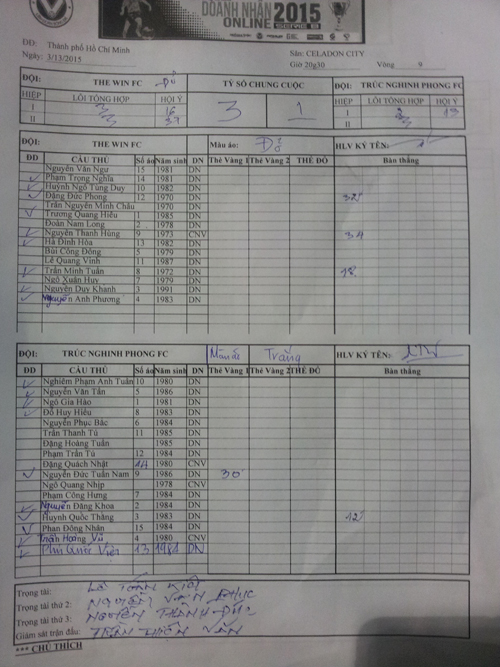 DOANH NHÂN 2015
ONLINE
ĐĐ: Thành phố Hồ Chí Minh
Ngày: 3/13/2015
Sân: CELADON CITY
Giờ 20g30 Vòng 8
ĐỘI: THE WIN FC Đỏ TỶ SỐ CHUNG CUỘC ĐỘI: TRÚC NGHINH PHONG FC
HIỆP LỖI TỔNG HỢP HỘI Ý 3 1 HIỆP LỖI TỔNG HỢP HỘI Ý
I 16 I 13
II II
ĐỘI: THE WIN FC Màu áo: Đỏ HLV KÝ TÊN:
DD CẦU THỦ Số áo Năm sinh DN Thẻ Vàng 1 Thẻ Vàng 2 THẺ ĐỎ Bàn thắng
Nguyễn Văn Ngư 15 1981 DN
Phạm Trọng Nghĩa 14 1981 DN
Huỳnh Ngô Tùng Duy 10 1982 DN
Đặng Đức Phong 12 1970 DN 32'
Trần Nguyễn Minh Châu 1970 DN
Trương Quang Hiếu 1 1985 DN
Đoàn Nam Long 2 1978 DN
Nguyễn Thanh Hùng 9 1973 CNV 34
Hà Đình Hòa 13 1982 DN
Bùi Công Đông 5 1979 DN
Lê Quang Vinh 11 1987 DN
Trần Minh Tuấn 8 1972 DN 18'
Ngô Xuân Huy 7 1979 DN
Nguyễn Duy Khanh 3 1991 DN
Nguyễn Anh Phương 4 1983 DN
ĐỘI: TRÚC NGHINH PHONG FC Màu áo Trắng HLV KÝ TÊN:
DD CẦU THỦ Số áo Năm sinh DN Thẻ Vàng 1 Thẻ Vàng 2 THẺ ĐỎ Bàn thắng
Nghiêm Phạm Anh Tuấn 10 1980 DN
Nguyễn Văn Tấn 5 1986 DN
Ngô Gia Hào 1 1981 DN
Đỗ Huy Hiếu 8 1983 DN
Nguyễn Phục Bắc 6 1984 DN
Trần Thanh Tú 11 1985 DN
Đặng Hoàng Tuấn 1985 DN
Phạm Trần Tú 12 1984 DN
Đặng Quách Nhật 14 1980 CNV
Nguyễn Đức Tuấn Nam 9 1986 DN 30'
Ngô Quang Nhịp 1978 CNV
Phạm Công Hưng 7 1984 DN
Nguyễn Đăng Khoa 2 1984 DN
Huỳnh Quốc Thắng 3 1983 DN 12'
Phan Đông Nhân 15 1984 DN
Trịnh Hoàng Vũ 4 1980 CNV
Phú Quốc Việt 13 1984 DN
Trọng tài:
Trọng tài thứ 2: NGUYỄN VĂN PHÚC
Trọng tài thứ 3: NGUYỄN THÀNH ĐỨC
Giám sát trận đấu: TRẦN THIỆN VĂN
*** CHÚ THÍCH